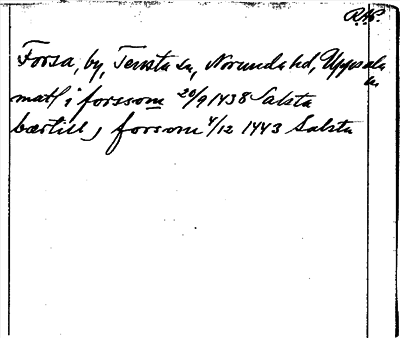 RAP.
Forsa, by, Tensta sn, Norunda hd, Uppsala
ln
matl i forssom 20/9 1438 Salsta
bærtill j forsom 4/12 1443 Salsta